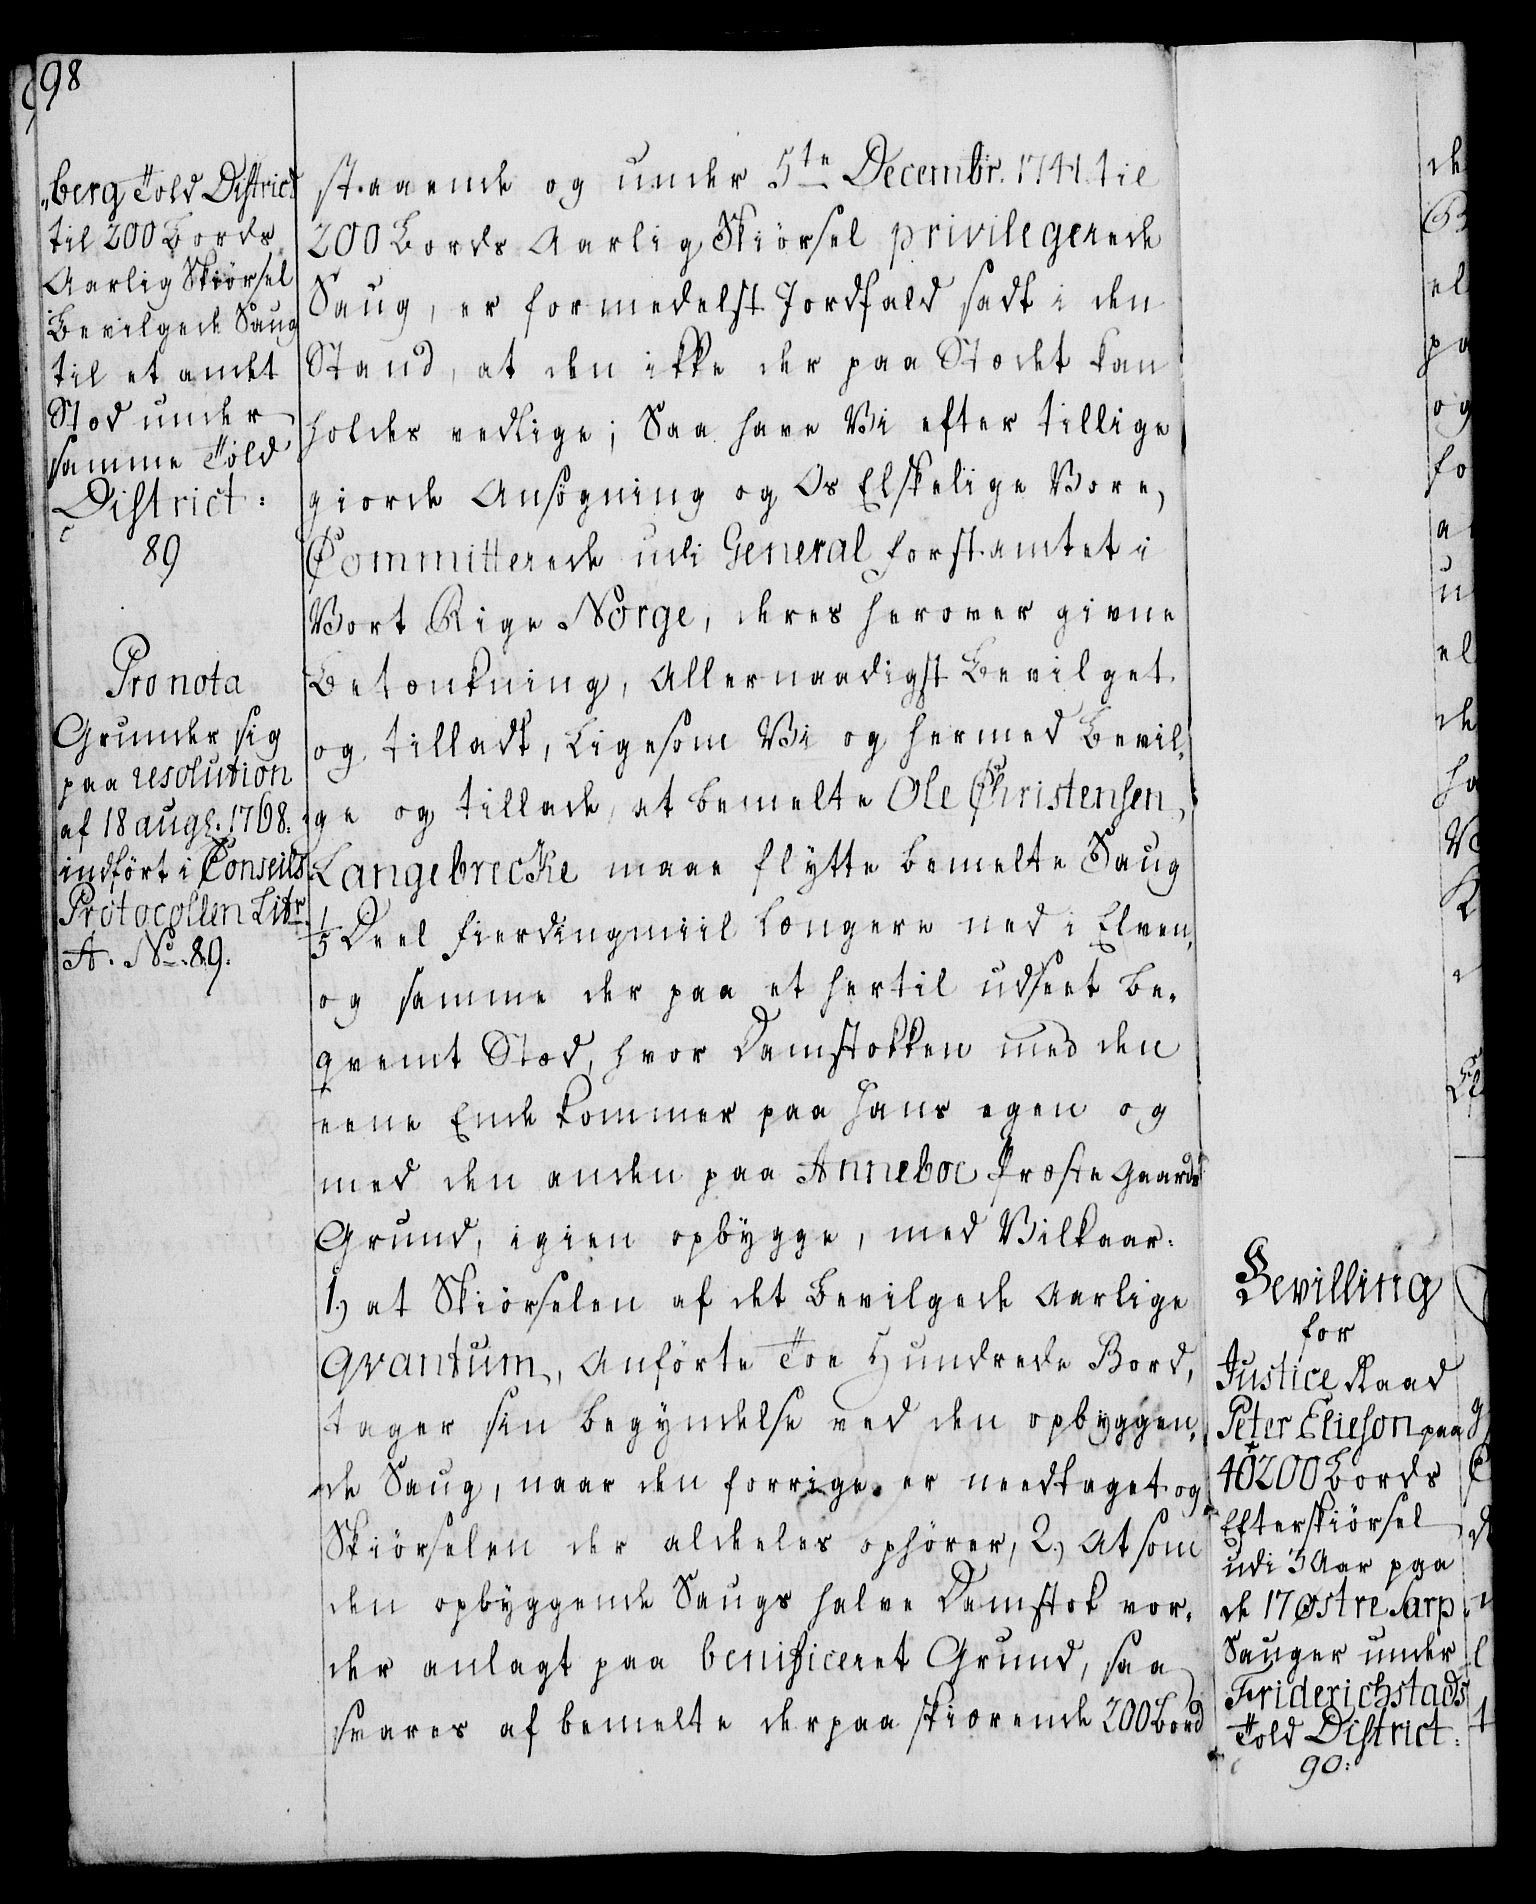 98
„berg Told District
til 200 Bords
Aarlig Skiörsel
Bevilgede Saug
til et andet
Stæd under
samme Told
District:
89
Pro nota
Grunder sig
paa resolution
af 18 augs. 1768.
indfört i Conseils
Protocollen Litr
A. No. 89.
staaende og under 5te Decembr. 1741. til
200 Bords Aarlig Skiörsel privilegerede
Saug, er formedelst Jordfald sadt i den
Stand, at den ikke der paa Stædet kan
holdes vedlige; Saa have Vi efter tillige
giorde Ansögning og Os Elskelige Vore,
Committerede udi General forstamtet i
Vort Rige Norge, deres herover givne
Betænkning, Allernaadigst Bevilget
og tilladt, Ligesom Vi og hermed Bevil„
ge og tillade, at bemelte Ole Christensen
Langebrecke maae flÿtte bemelte Saug
1/5 Deel fierdingmiil længere ned i Elven,
og samme der paa et hertil udseet be„
qvemt Stæd, hvor Damstokken med den
eene Ende kommer paa hans egen og
med den anden paa Anneboe Præste Gaards
Grund, igien opbÿgge, med Vilkaar:
1.) at Skiörselen af det Bevilgede Aarlige
Qvantum, Anförte Toe Hundrede Bord,
tager sin begÿndelse ved den opbÿggen„
de Saug, naar den forrige er needtaget og
Skiörselen der aldeeles ophörer, 2.) At som
den opbÿggende Saugs halve Damstok vor„
der anlagt paa benificeret Grund, saa
svares af bemelte derpaa skiærende 200 Bord
Bevilling
for
Justice Raad
Peter Elieson paa
40200 Bords
Efterskiörsel
udi 3 Aar paa
de 17 Østre Sarp
Sauger under
Friderichstads
Told District:
90: